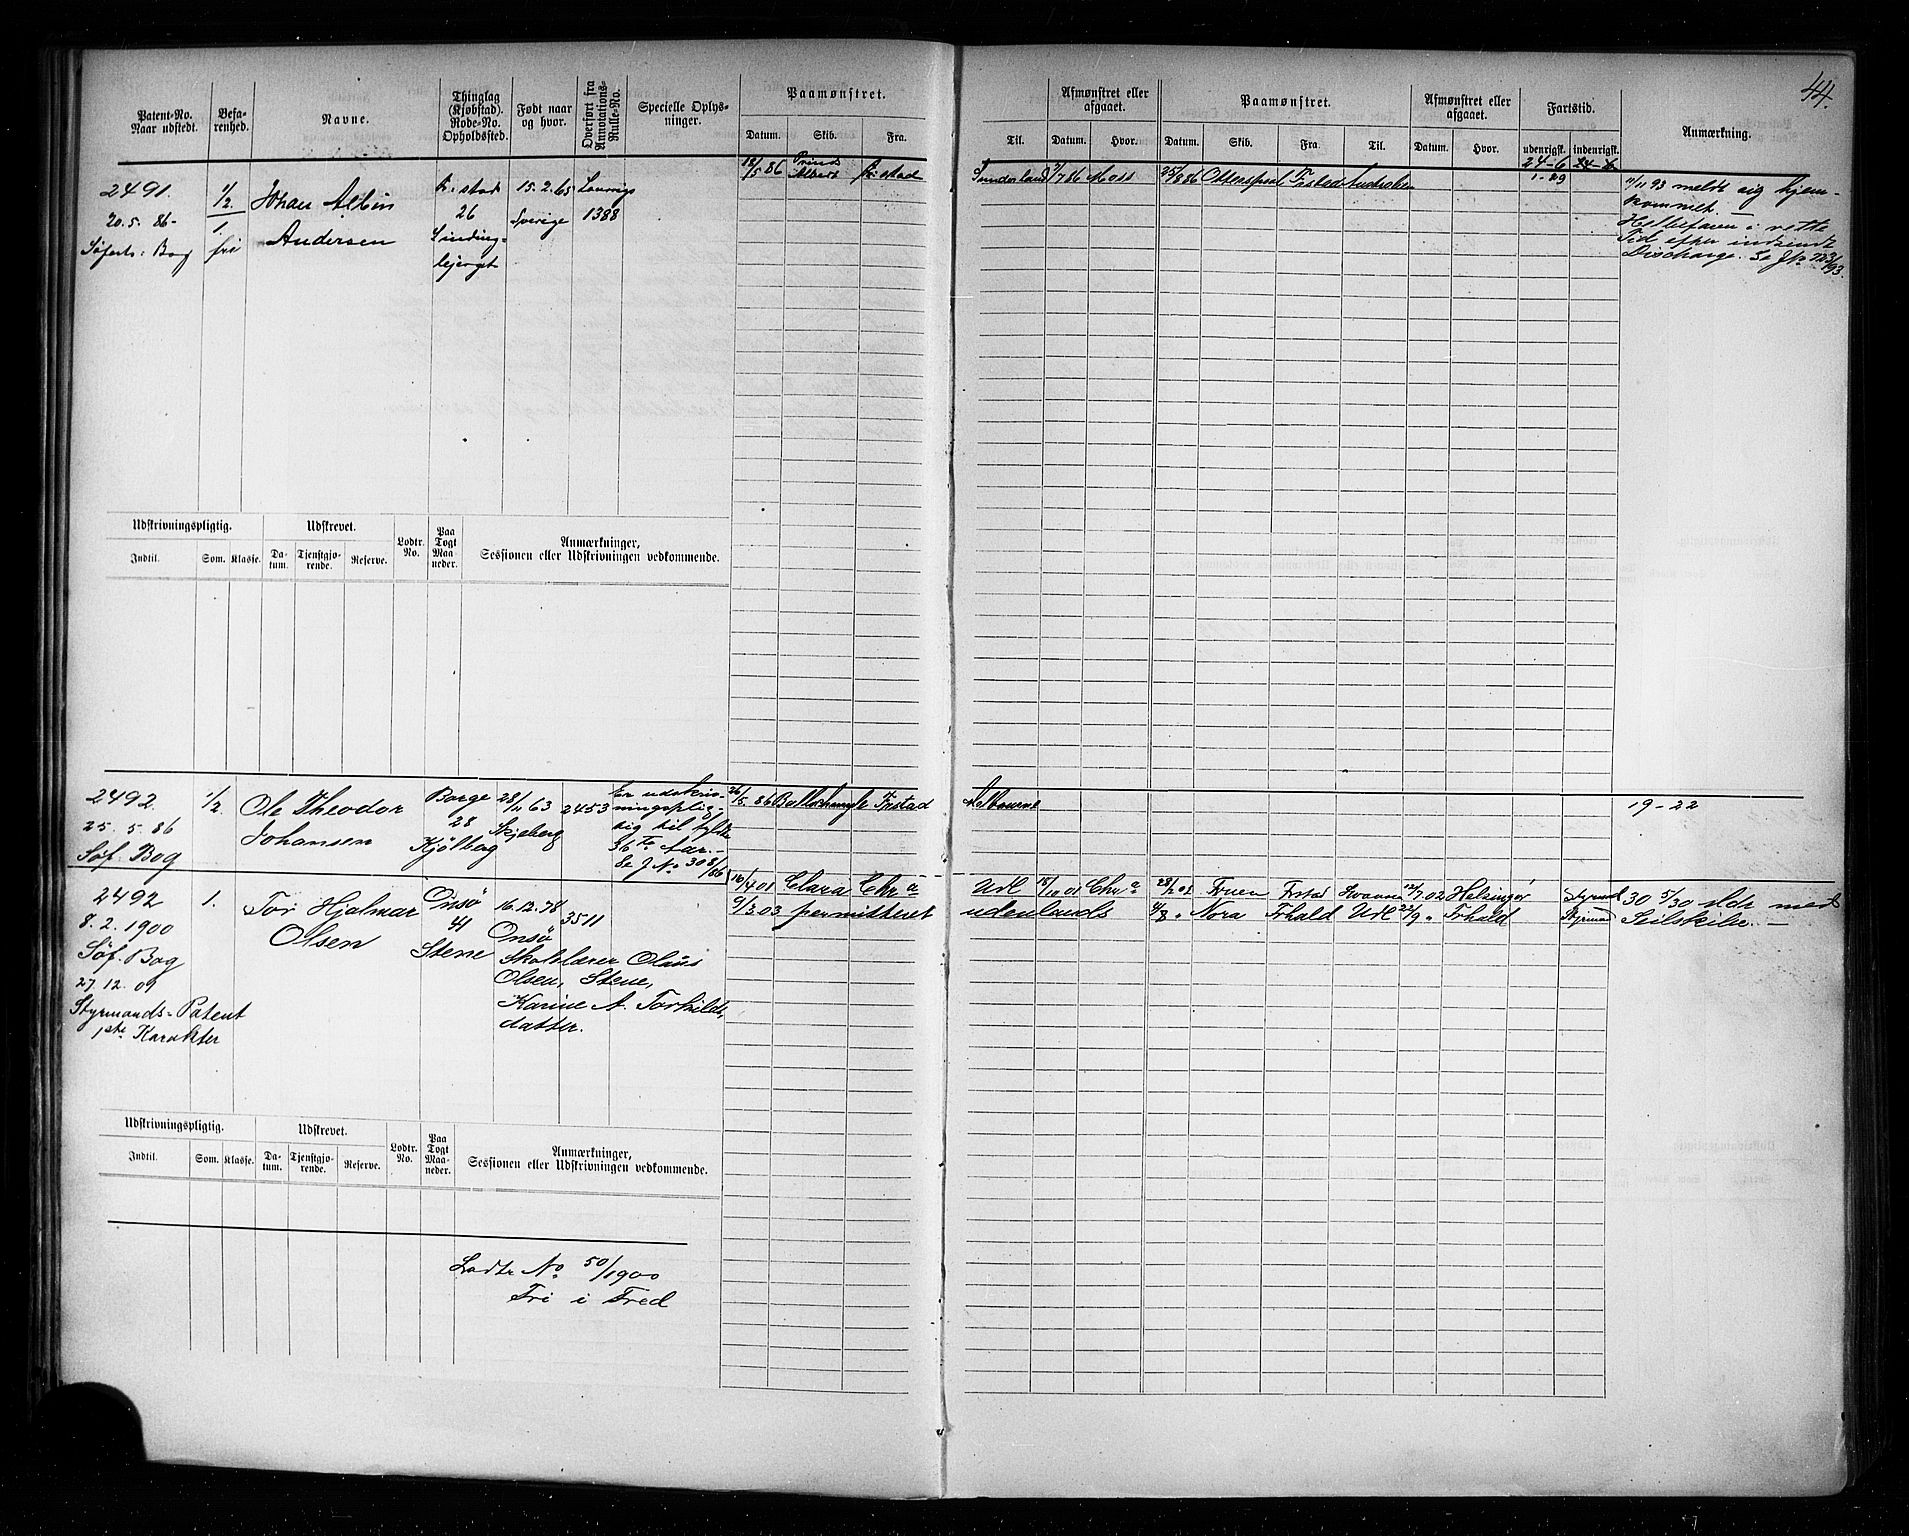 44.
Patent-No. Naar udstedt.
Befarenhed.
Navne.
Thinglag (Kjøbstad). Rode-No. Opholdssted.
Født naar og hvor.
Overført fra Annotations-Rulle-No.
Specielle Oplysninger.
Paamønstret.
Datum. Skib. Fra.
Til.
Afmønstret eller afgaaet.
Datum. Hvor.
Paamønstret.
Datum. Skib. Fra. Til.
Afmønstret eller afgaaet.
Datum. Hvor.
Fartstid.
udenrigsk. indenrigsk.
Anmærkning.
24-6 24-6
1-29
2491.
20.5.86-
Søfarts: Bog
1/2
1
fri
Johan Albin
Andersen
Fr:stad
26
bjerget
15.2.65
Sverige
Laurvigs
1388
18/5 86 Prinds Albert Fr:stad
Sunderland 7/7 86 Moss
25/8 86 Fr:stad
11/11 93 meldt sig hjem-
kommet. —
i rette
Tid efter indsendt
Discharge. Se J.No
Udskrivningspligtig.
Indtil. Som. Klasse.
Udskrevet.
Datum. Tjenstgjørende. Reserve.
Lodtr. No.
Paa Togt Maaneder.
Anmærkninger,
Sessionen eller Udskrivningen vedkommende.
2492.
25.5.86
Søf. Bog
1/2
Ole Theodor
Johansen
Borge
28
Kjølberg
28/11 63
Skjeberg
2453
Er udskriv-
ningsplig-
tig til fyldte
36 Aar.-
Se J No 308/86
26/5 86 Fr:stad
Melbourne
19-22
2492
8.2.1900
Søf. Bog
27.12.09
Styrmands-Patent
1ste Karakter
1.
Tor Hjalmar
Olsen
Onsø
41
Stene
16.12.78
Onsø
3511
Skolelærer Olaus
Olsen, Stene,
Karine A. Torkilds-
datter.
16/4 01 Clara Chr a
9/3 03 permitteret
Udl 18/10 01 Chr a
udenlands
28/2 02 Fruen Frstad 12/7 02 Helsingør
4/8 " Nora Frhald Udl 22/9 " Frhald
Styrmd
Styrmd
30 5/30 Mdr med
Seilskibe. —
Udskrivningspligtig.
Indtil. Som. Klasse.
Udskrevet.
Datum. Tjenstgjørende. Reserve.
Lodtr. No.
Paa Togt Maaneder.
Anmærkninger,
Sessionen eller Udskrivningen vedkommende.
Lodtr No 50/1900
Fri i Fred